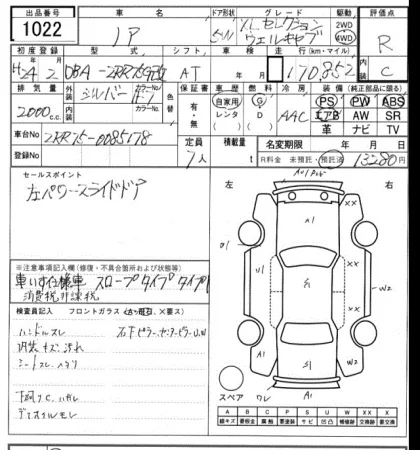 出品番号 車名 ドア形状 グレード 駆動 評価点
1022 5W X Lセレクション ウェルキャブ 2WD 4WD R
初度登録 型式 シフト 車検 走行(km・マイル) 内装
H24 2 DBA-ZRR75 AT 年 月 170,852 C
排気量 外装色 シルバー カラーNo. 色替 保証書 車歴 燃料 冷房 装備(純正部品に限る)
2000 c.c. 内装色 カラーNo. 有・無 自家用 レンタ G D AAC PS PW ABS
エアB AW SR
革 ナビ TV
車台No ZRR75-0085178 定員 7人 積載量 t 名変期限 年 月 日
登録No R料金 未預託・預託済 13280円
セールスポイント
左パワースライドドア
左 右
A1
A1
U1
×× ×× ××
W2 W2
S1
A1
A1
スペア ワレ
※注意事項記入欄(修復・不具合箇所および状態等)
車いす仕様車 スロープタイプ タイプ1
消費税非課税
検査員記入 フロントガラス (A:飛石、×要ス)
ハンドルスレ 右Fピラー、センターピラー
内装キズ 汚れ
シートスレ
下廻り
A B C P S U W X XX
線キズ 要板金 腐食 要塗装 サビ 凹凸 補修跡 要交換 交換済